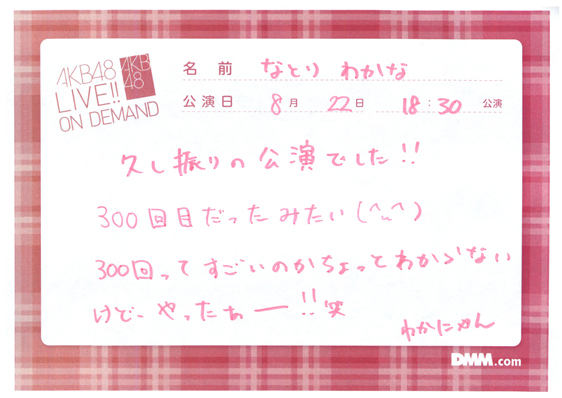 AKB48
LIVE!!
ON DEMAND
AKB
48
名 前 なとり わかな
公演日 8月 22日 18:30 公演
久し振りの公演でした!!
300回目だったみたい(^ω^)
300回ってすごいのかちょっとわからない
けどーやったぁー!!笑
わかにゃん
DMM.com